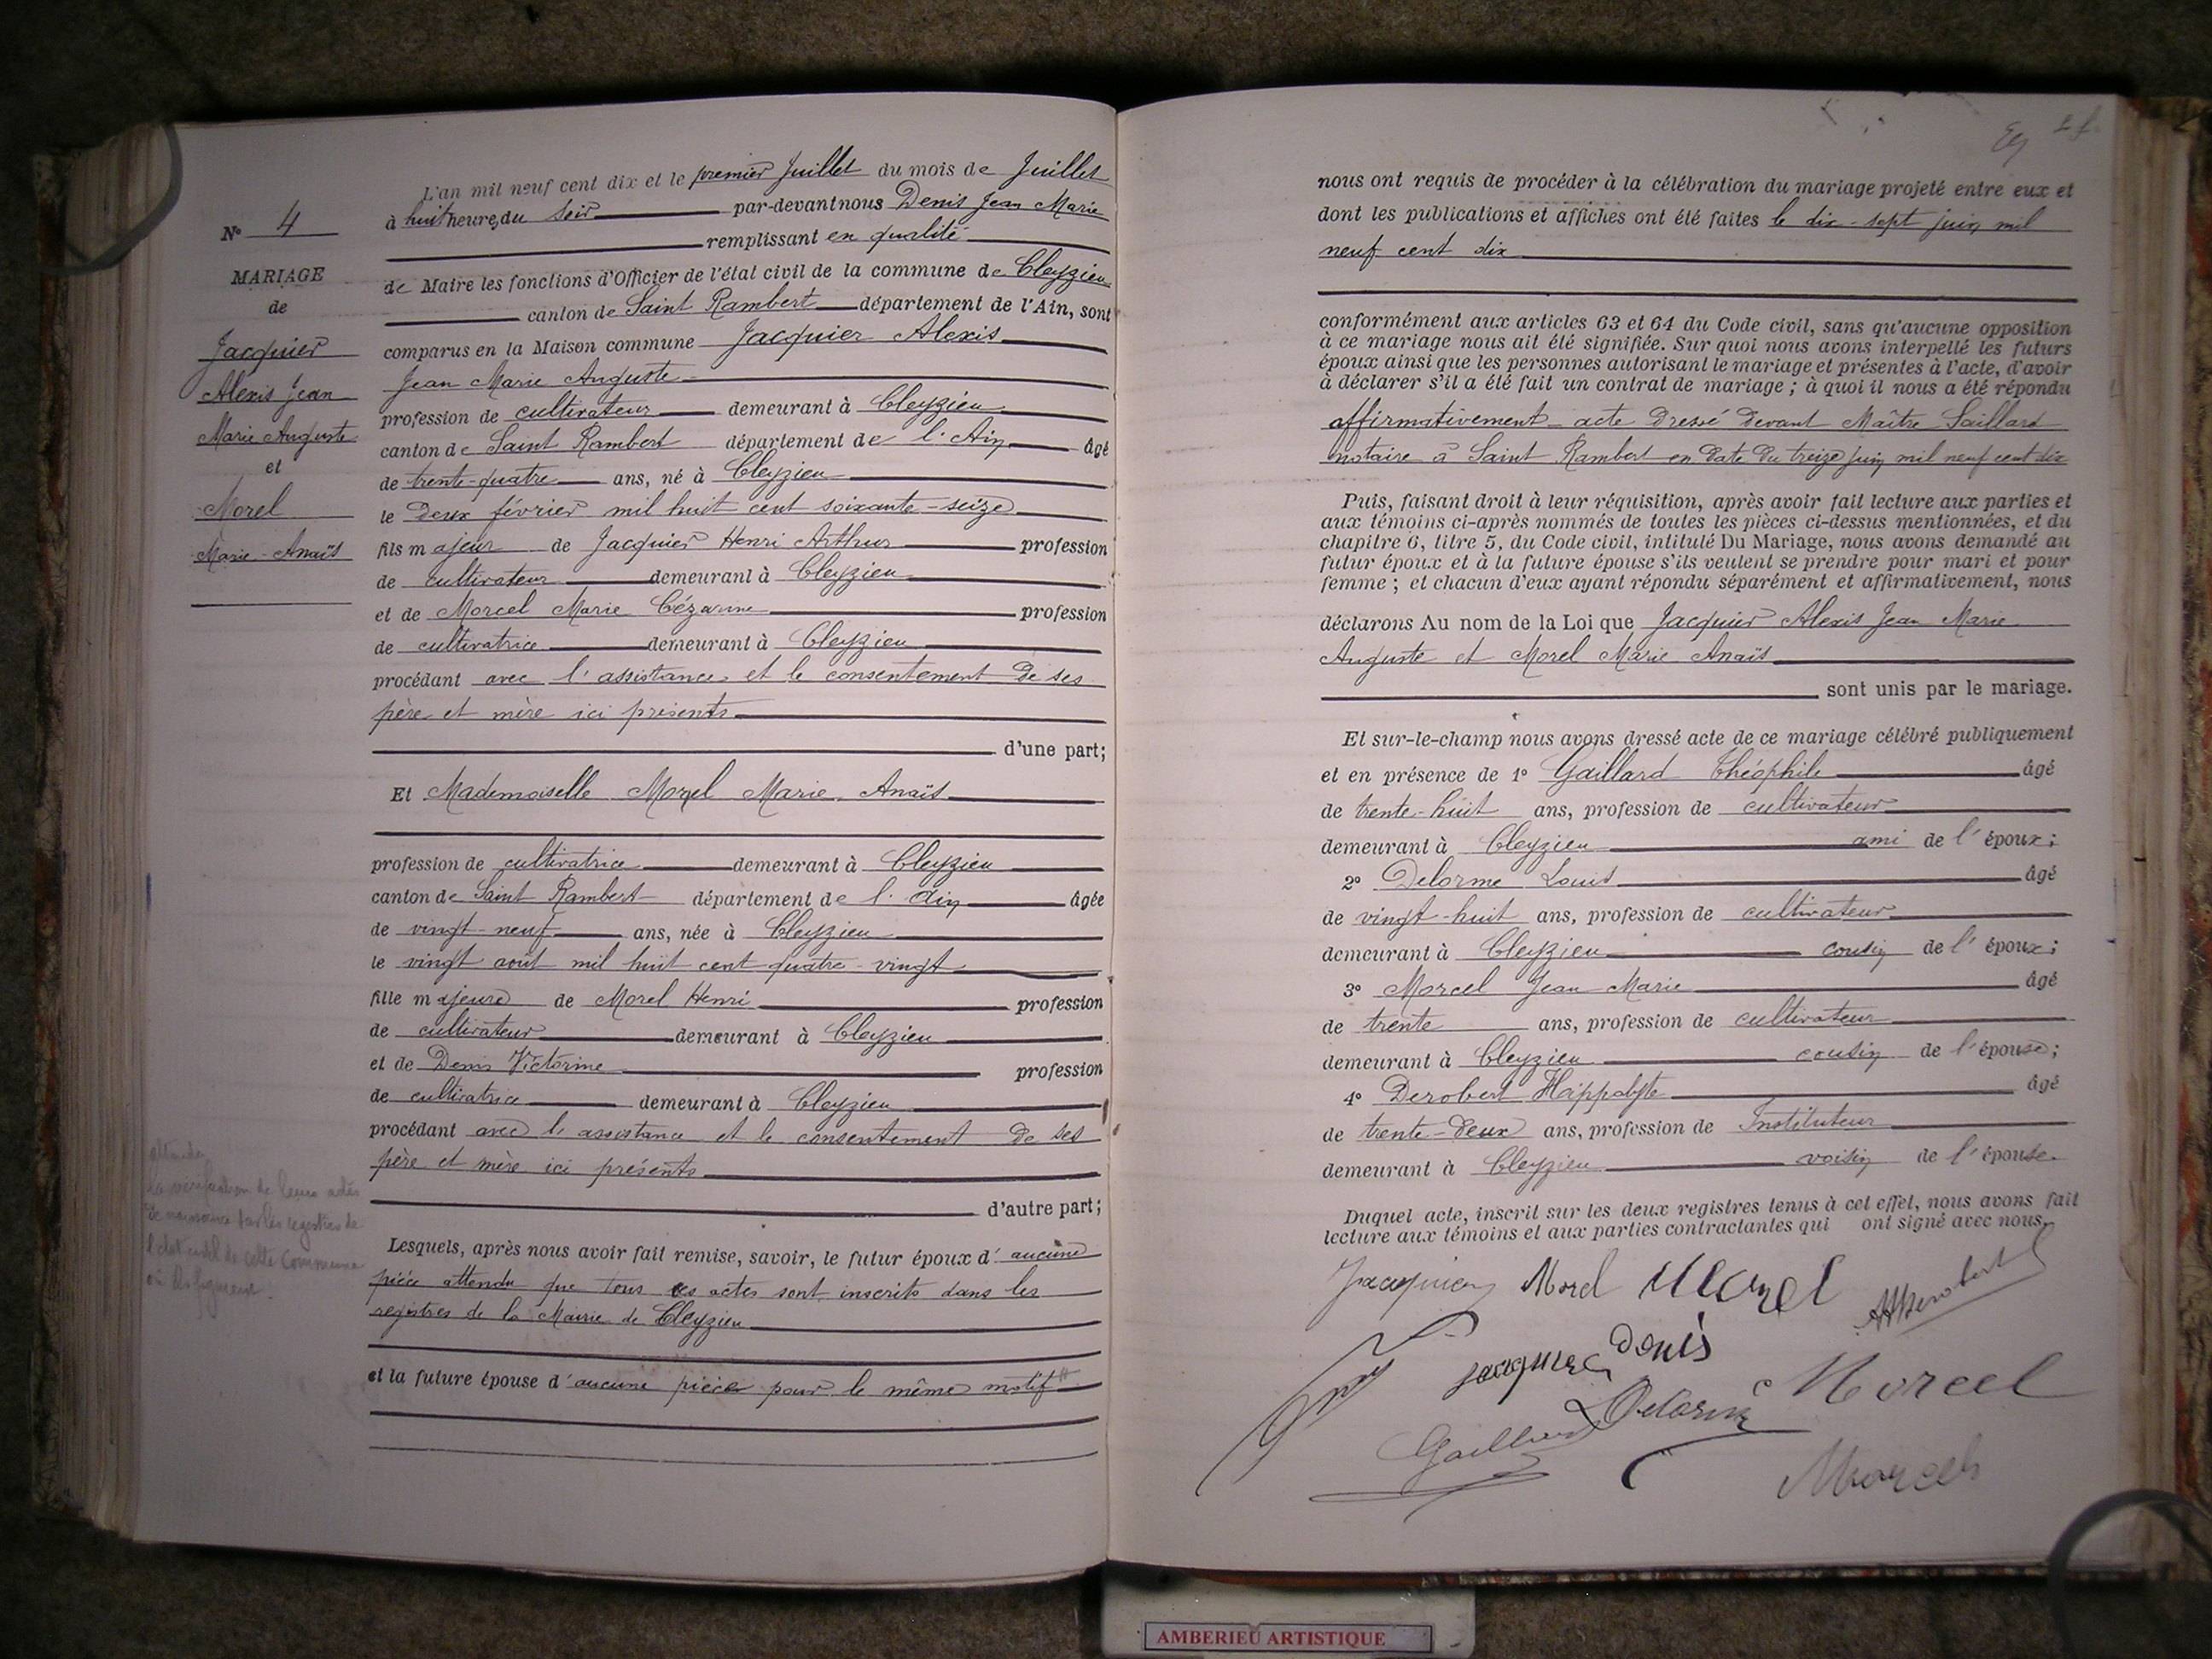 L'an mil neuf cent dix et le premier Juillet du mois de Juillet
à huit heures du soir par-devant nous Denis Jean Marie
remplissant en qualité
de Maire les fonctions d'Officier de l'état civil de la commune de Cleyzieu
canton de Saint Rambert département de l'Ain, sont
comparus en la Maison commune Jacquier Alexis
Jean Marie Auguste
profession de cultivateur demeurant à Cleyzieu
canton de Saint Rambert département de l'Ain âgé
de trente-quatre ans, né à Cleyzieu
le deux février mil huit cent soixante-seize
fils majeur de Jacquier Henri Arthur profession
de cultivateur demeurant à Cleyzieu
et de Morcel Marie Cézarine profession
de cultivatrice demeurant à Cleyzieu
procédant avec l'assistance et le consentement de ses
père et mère ici présents
d'une part;
Et Mademoiselle Morel Marie Anaïs
profession de cultivatrice demeurant à Cleyzieu
canton de Saint Rambert département de l'Ain âgée
de vingt-neuf ans, née à Cleyzieu
le vingt août mil huit cent quatre-vingt
fille majeure de Morel Henri profession
de cultivateur demeurant à Cleyzieu
et de Denis Victorine profession
de cultivatrice demeurant à Cleyzieu
procédant avec l'assistance et le consentement de ses
père et mère ici présents
d'autre part;
Lesquels, après nous avoir fait remise, savoir, le futur époux d'aucune
pièce attendu que tous ces actes sont inscrits dans les
registres de la Mairie de Cleyzieu
et la future épouse d'aucune pièce pour le même motif
N° 4
MARIAGE
de
Jacquier
Alexis Jean
Marie Auguste
et
Morel
Marie-Anaïs
la vérification de leurs actes
de naissance sur les registres de
l'état civil de cette Commune
nous ont requis de procéder à la célébration du mariage projeté entre eux et
dont les publications et affiches ont été faites le dix-sept juin mil
neuf cent dix
conformément aux articles 63 et 64 du Code civil, sans qu'aucune opposition
à ce mariage nous ait été signifiée. Sur quoi nous avons interpellé les futurs
époux ainsi que les personnes autorisant le mariage et présentes à l'acte, d'avoir
à déclarer s'il a été fait un contrat de mariage; à quoi il nous a été répondu
affirmativement acte dressé devant Maître Saillard
notaire à Saint Rambert en date du treize juin mil neuf cent dix
Puis, faisant droit à leur réquisition, après avoir fait lecture aux parties et
aux témoins ci-après nommés de toutes les pièces ci-dessus mentionnées, et du
chapitre 6, titre 5, du Code civil, intitulé Du Mariage, nous avons demandé au
futur époux et à la future épouse s'ils veulent se prendre pour mari et pour
femme; et chacun d'eux ayant répondu séparément et affirmativement, nous
déclarons Au nom de la Loi que Jacquier Alexis Jean Marie
Auguste et Morel Marie Anaïs
sont unis par le mariage.
Et sur-le-champ nous avons dressé acte de ce mariage célébré publiquement
et en présence de 1° Gaillard Théophile âgé
de trente-huit ans, profession de cultivateur
demeurant à Cleyzieu ami de l'époux;
2° Delorme Louis âgé
de vingt-huit ans, profession de cultivateur
demeurant à Cleyzieu cousin de l'époux;
3° Morcel Jean-Marie âgé
de trente ans, profession de cultivateur
demeurant à Cleyzieu cousin de l'épouse;
4° Derobert Hippolyte âgé
de trente-deux ans, profession de Instituteur
demeurant à Cleyzieu voisin de l'épouse.
Duquel acte, inscrit sur les deux registres tenus à cet effet, nous avons fait
lecture aux témoins et aux parties contractantes qui ont signé avec nous,
Jacquier Morel Morel HDerobert
Jacquier Denis
Morcel
Delorme
Gaillard
Morcel
AMBERIEU ARTISTIQUE